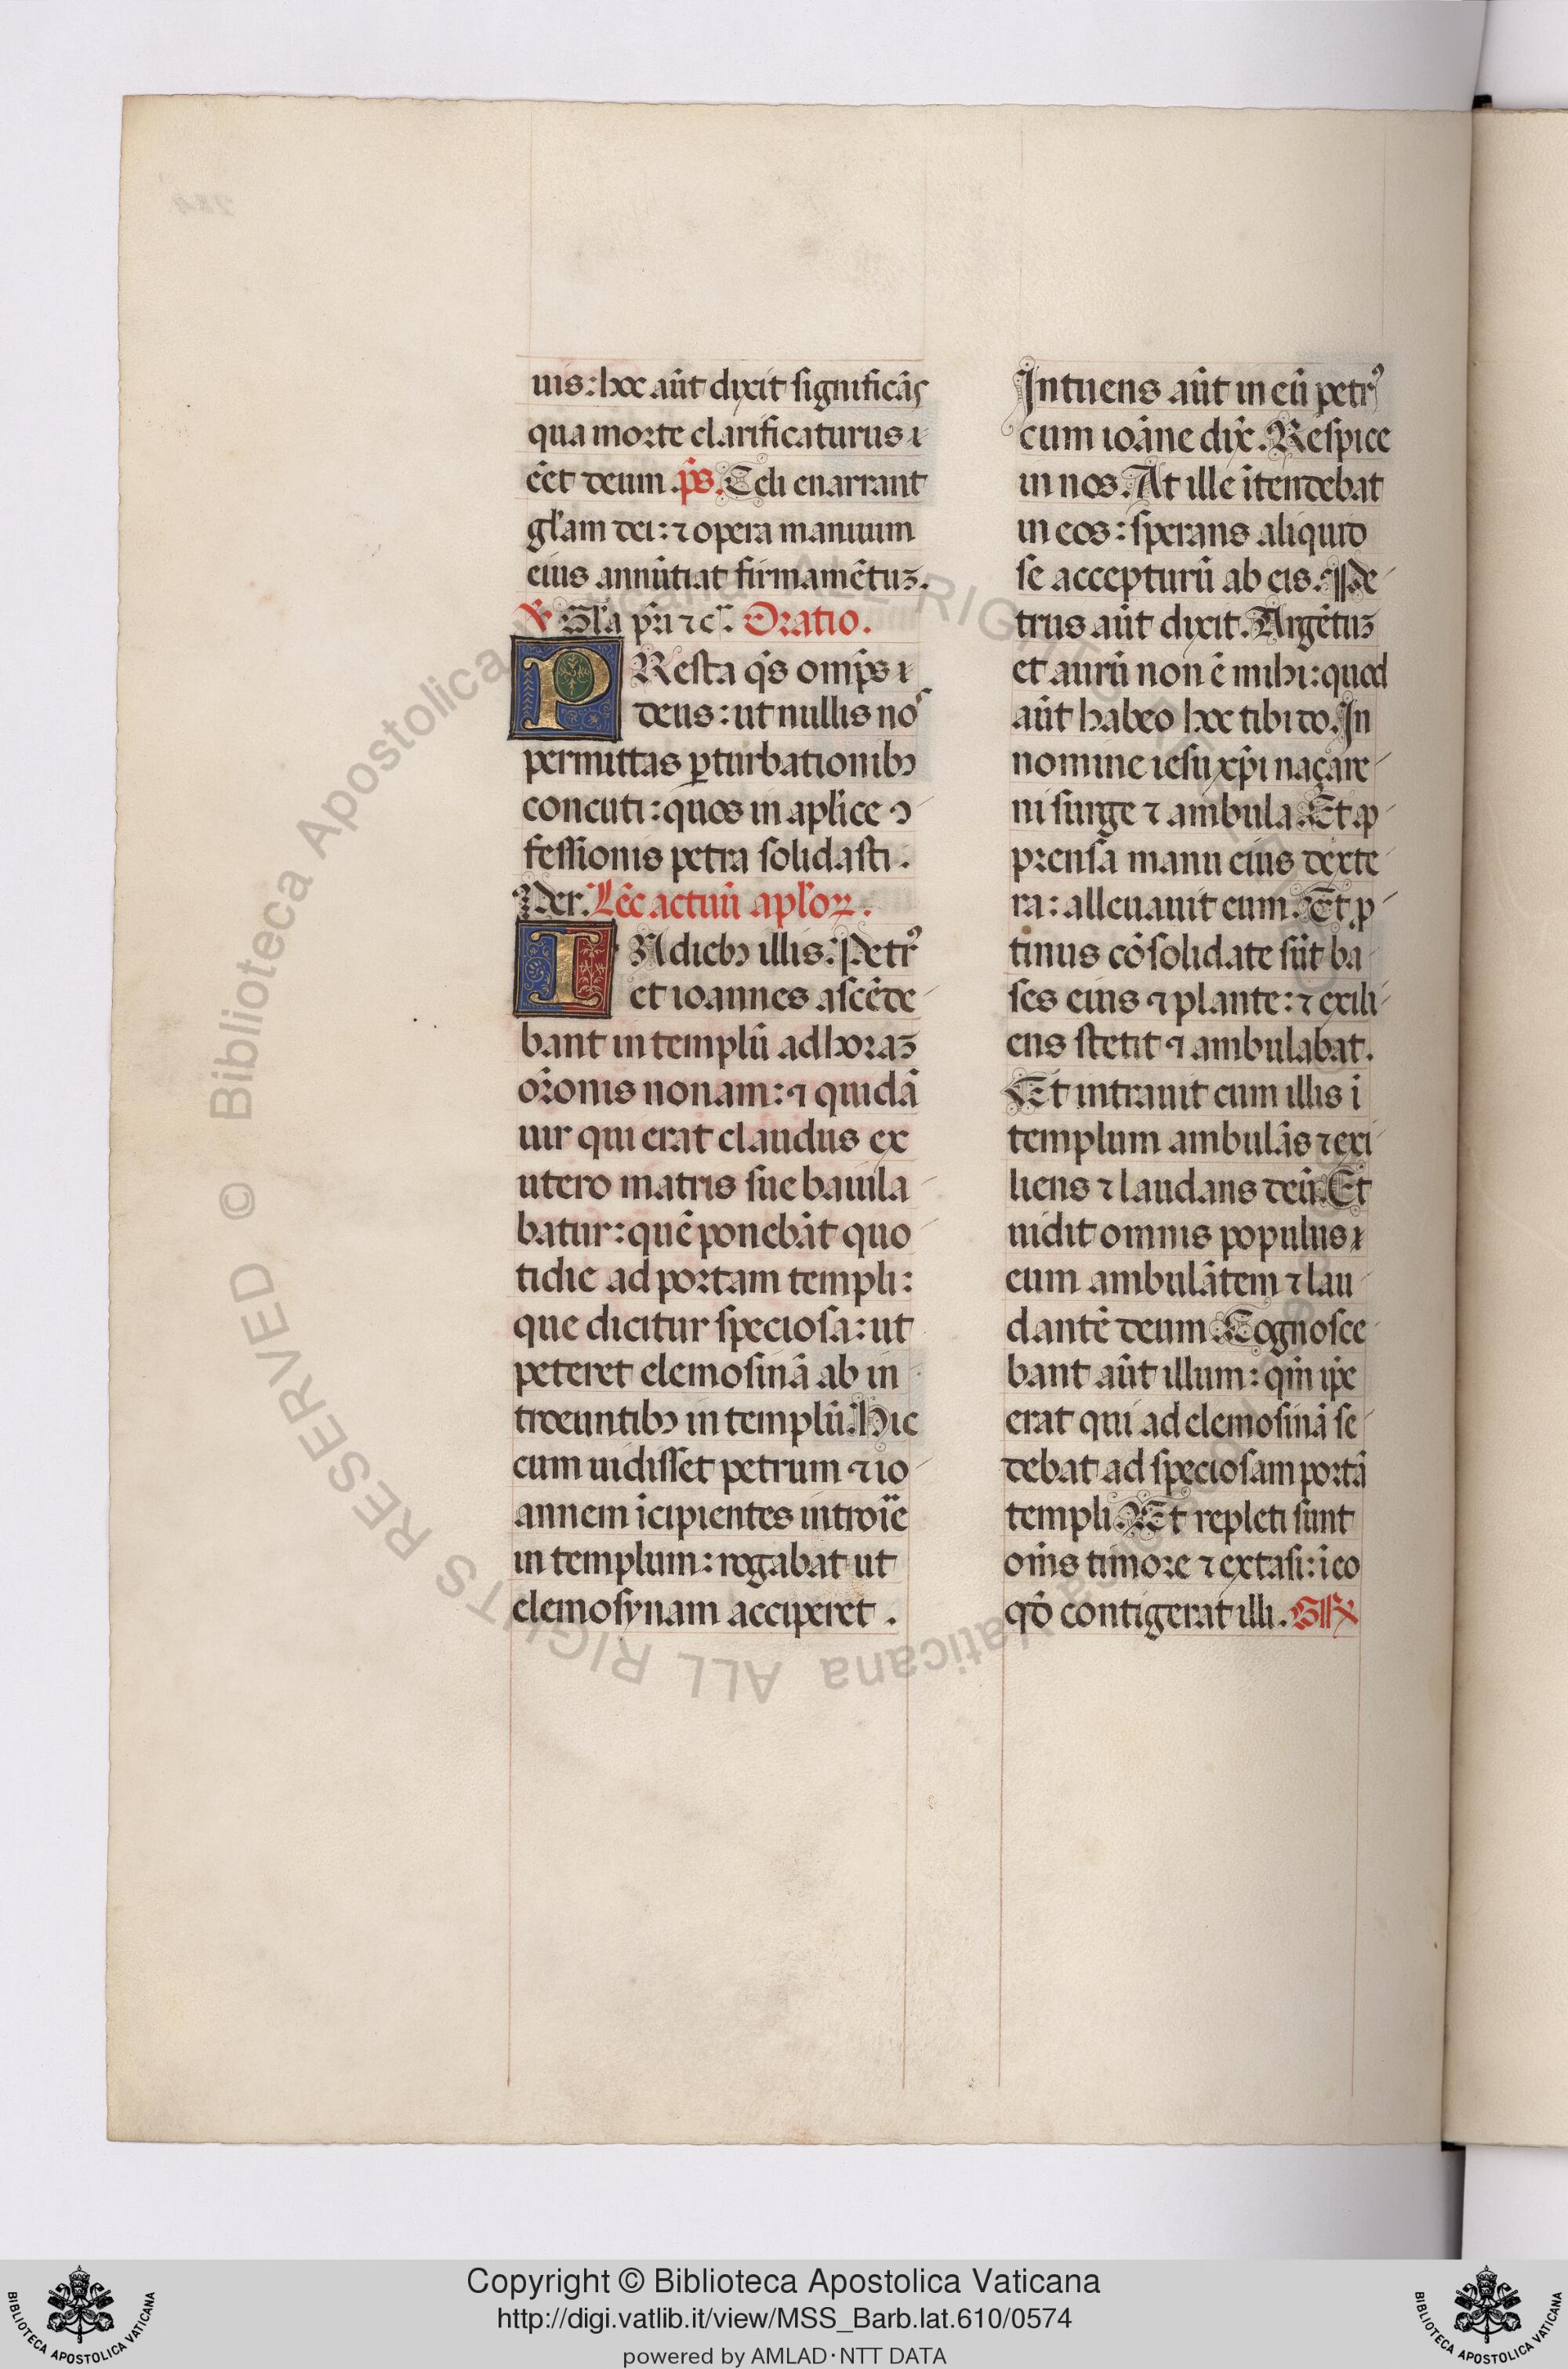 uis: hoc aūt dixit significās
qua morte clarificaturus
eēt deum. ps̄. Celi enarrant
gl̄am dei: ⁊ opera manuum
eius annūtiat firmamētuꝫ.
℣ Gl̄a pr̄i ⁊ c̄. Oratio.
PResta qs̄ omp̄s
deus: ut nullis nos
permittas ꝑturbationibꝫ
concuti: quos in apl̄ice ꝯ
fessionis petra solidasti.
Per. Lēc actuū apl̄oꝝ.
IN diebꝫ illis: Petrꝰ
et ioannes ascēde
bant in templū ad horaꝫ
or̄onis nonam: ⁊ quidā
uir qui erat claudus ex
utero matris sue baiula
batur: quē ponebāt quo
tidie ad portam templi:
que dicitur speciosa: ut
peteret elemosinā ab in
troeuntibꝫ in templū. Hic
cum uidisset petrum ⁊ io
annem īcipientes introīe
in templum: rogabat ut
elemosynam acciperet.
Intuens aūt in eū petrꝰ
cum ioāne dix̄. Respice
in nos. At ille ītendebat
in eos: sperans aliquid
se accepturū ab eis. Pe
trus aūt dixit. Argētuꝫ
et aurū non ē mihi: quod
aūt habeo hoc tibi do. In
nomine iesu xp̄i naçare
ni surge ⁊ ambula. Et ap
prensa manu eius dexte
ra: alleuauit eum. Et ꝓ
tinus cōsolidate sūt ba
ses eius ⁊ plante: ⁊ exili
ens stetit ⁊ ambulabat.
Et intrauit cum illis ī
templum ambulās ⁊ exi
liens ⁊ laudans deū. Et
uidit omnis populus
eum ambulātem ⁊ lau
dantē deum. Cognosce
bant aūt illum: qm̄ ip̄e
erat qui ad elemosinā se
debat ad speciosam portā
templi. Et repleti sunt
om̄s timore ⁊ extasi: ī eo
qd̄ contigerat illi. GR̄
Copyright © Biblioteca Apostolica Vaticana
http://digi.vatlib.it/view/MSS_Barb.lat.610/0574
powered by AMLAD·NTT DATA